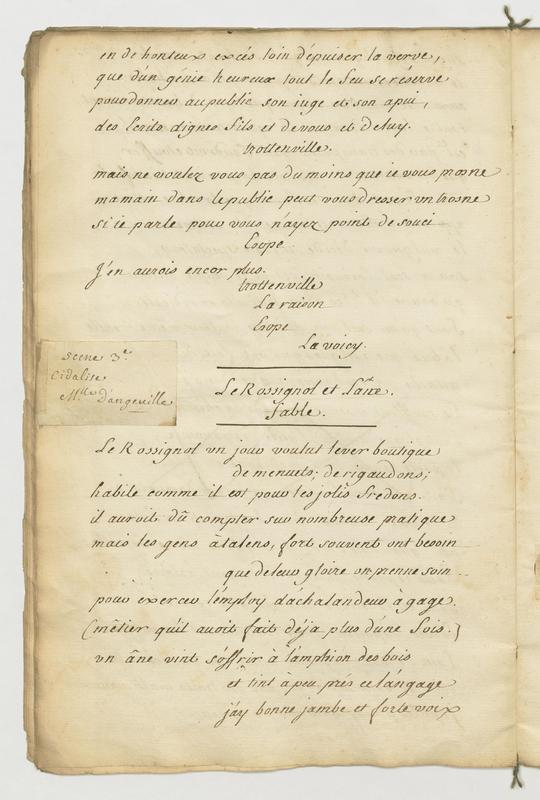 en de honteux excés loin dépuiser la verve,
que d'un génie heureux tout le feu se réserve
pour donner au public son iuge et son apui,
des Ecrits dignes fils et de vous et de luy.
trottenville.
mais ne voulez vous pas du moins que ie vous prosne
ma main dans le public peut vous dresser un trosne
si ie parle pour vous n'ayez point de souci
Esope
J'en aurois encor plus.
trottenville
La raison
Esope
La voicy.
Scene 3e.
Cidalise
Mlle d'angeville
Le Rossignol et L'asne.
fable.
Le Rossignol un jour voulut lever boutique
de menuets; de rigaudons;
habile comme il est pour les jolis fredons.
il auroit dû compter sur nombreuse pratique
mais les gens à talens, fort souvent ont besoin
que de leur gloire on prenne soin
pour exercer l'employ d'achalandeur à gage.
(mêtier qu'il avoit fait déja plus d'une fois.)
un âne vint s'offrir à l'amphion des bois
et tint à peu prés ce langage
j'ay bonne jambe et forte voix